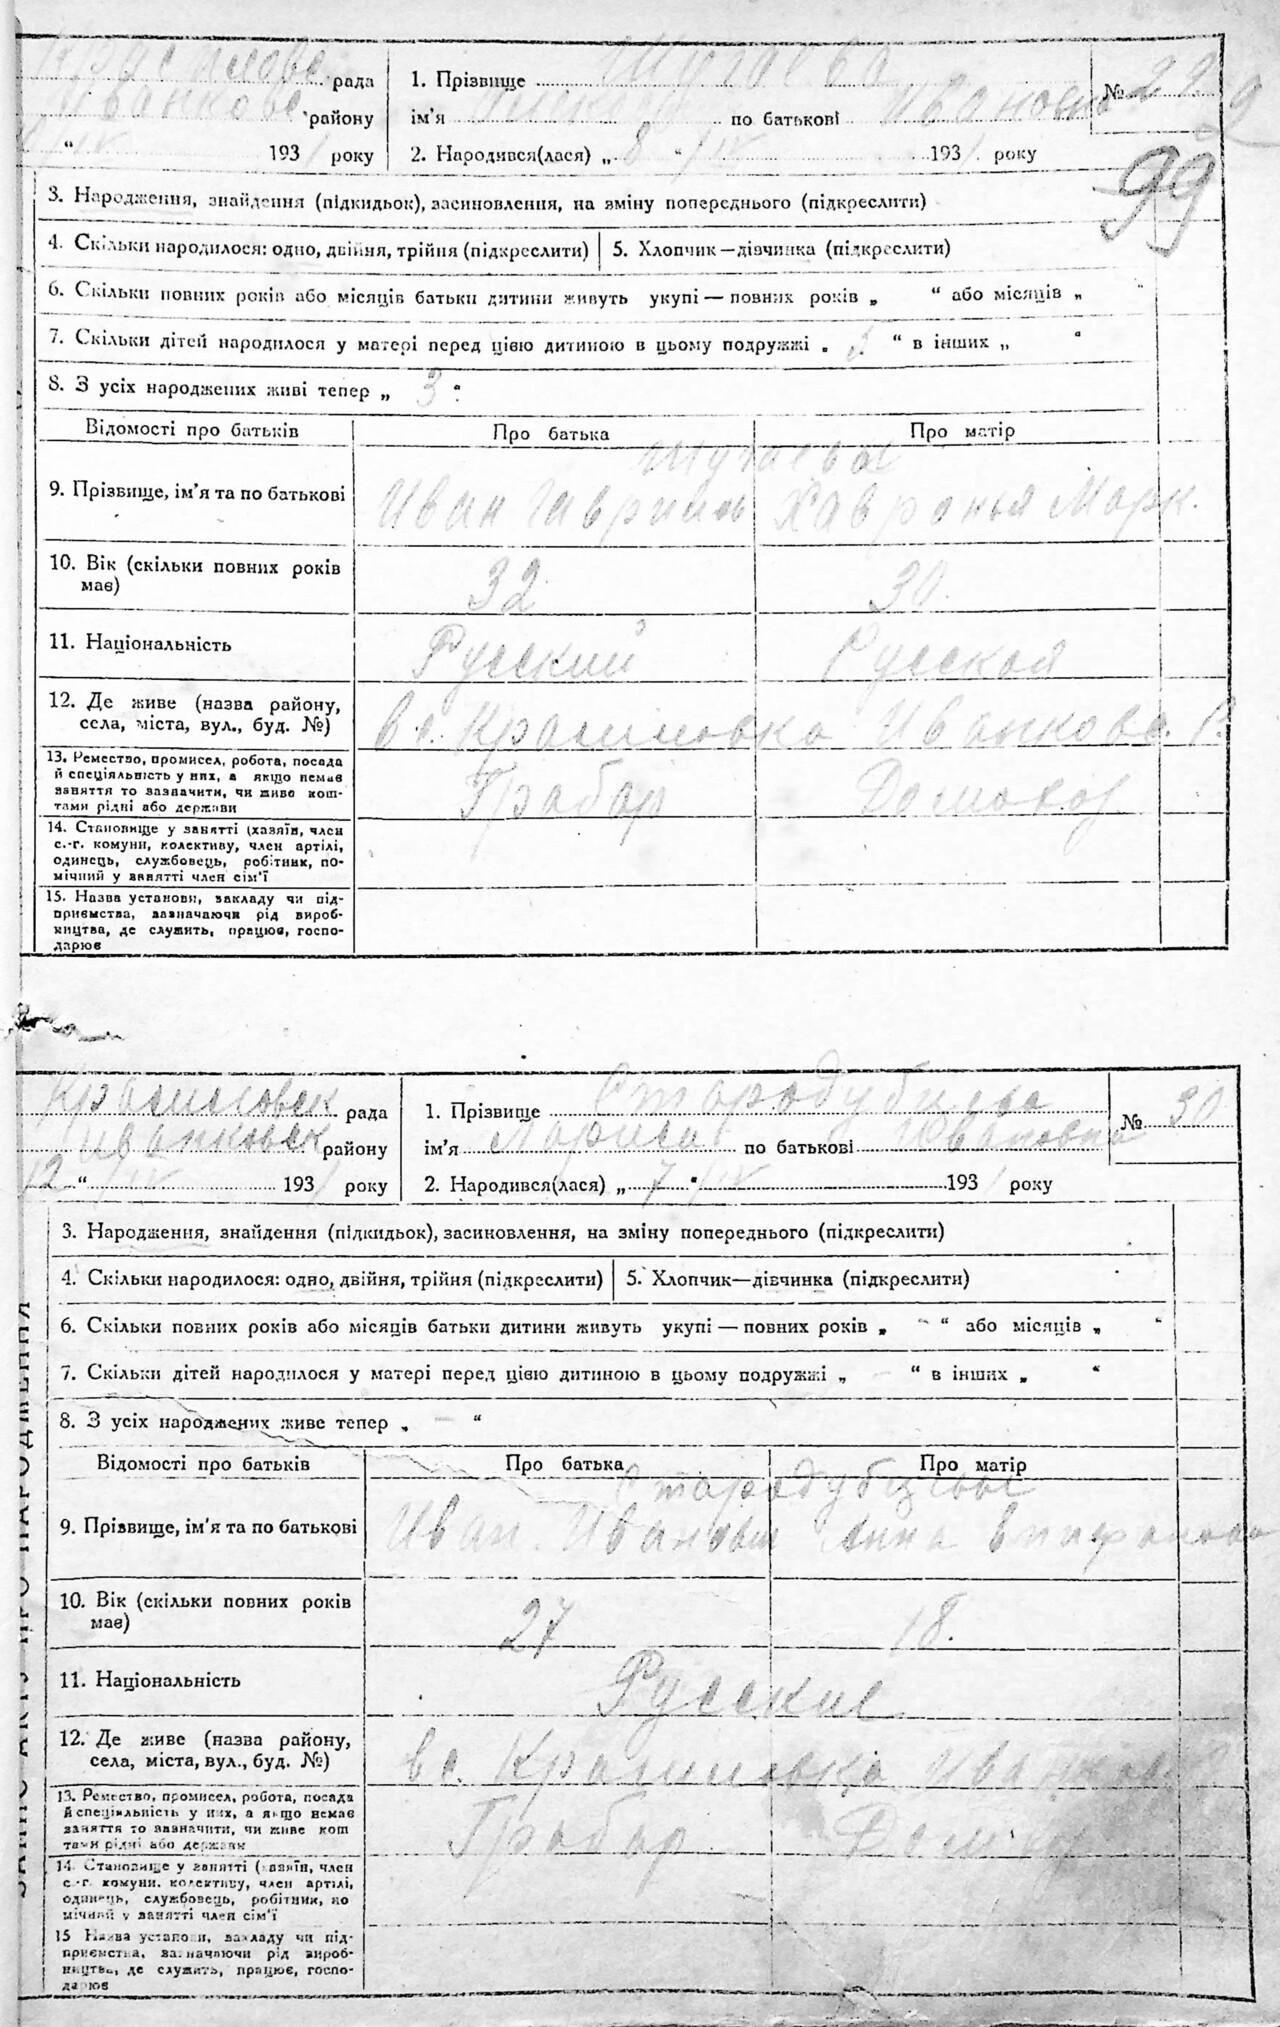 рада
району
193 року
1. Прізвище Шугаева
ім'я по батькові Ивановна
2. Народився(лася) „ 8 “ IV 1931 року
№ 29
99
3. Народження, знайдення (підкидьок), засиновлення, на зміну попереднього (підкреслити)
4. Скільки народилося: одно, двійня, трійня (підкреслити)
5. Хлопчик—дівчинка (підкреслити)
6. Скільки повних років або місяців батьки дитини живуть укупі — повних років „ “ або місяців „ “
7. Скільки дітей народилося у матері перед цією дитиною в цьому подружжі „ “ в інших „ “
8. З усіх народжених живі тепер „ 3 “
Відомості про батьків
Про батька
Про матір
Шугаевы
9. Прізвище, ім'я та по батькові
Иван Гаврилов
Хавронья Марк.
10. Вік (скільки повних років має)
32
30.
11. Національність
Русский
Русская
12. Де живе (назва району, села, міста, вул., буд. №)
в с. Красиловка Иванков. Р.
13. Ремество, промисел, робота, посада й спеціяльність у них, а якщо немає заняття то зазначити, чи живе коштами рідні або держави
Грабар
Домохоз
14. Становище у занятті (хазяїн, член с.-г. комуни, колективу, член артілі, одинець, службовець, робітник, помічний у занятті член сім'ї
15. Назва установи, закладу чи підприємства, зазначаючи рід виробництва, де служить, працює, господарює
Красиловск рада
Иванковск району
12 “ IV 193 року
1. Прізвище Стародубцева
ім'я Лариса по батькові Ивановна
2. Народився(лася) „ 7 “ IV 1931 року
№ 30
3. Народження, знайдення (підкидьок), засиновлення, на зміну попереднього (підкреслити)
4. Скільки народилося: одно, двійня, трійня (підкреслити)
5. Хлопчик—дівчинка (підкреслити)
6. Скільки повних років або місяців батьки дитини живуть укупі — повних років „ - “ або місяців „ “
7. Скільки дітей народилося у матері перед цією дитиною в цьому подружжі „ — “ в інших „ “
8. З усіх народжених живе тепер „ — “
Відомості про батьків
Про батька
Про матір
Стародубцевы
9. Прізвище, ім'я та по батькові
Иван Иванович
Анна
10. Вік (скільки повних років має)
27
18.
11. Національність
Русские
12. Де живе (назва району, села, міста, вул., буд. №)
в с. Красиловка
13. Ремество, промисел, робота, посада й спеціяльність у них, а якщо немає заняття то зазначити, чи живе коштами рідні або держави
Грабар
14. Становище у занятті (хазяїн, член с.-г. комуни, колективу, член артілі, одинець, службовець, робітник, помічний у занятті член сім'ї
15 Назва установи, закладу чи підприємства, зазначаючи рід виробництва, де служить, працює, господарює